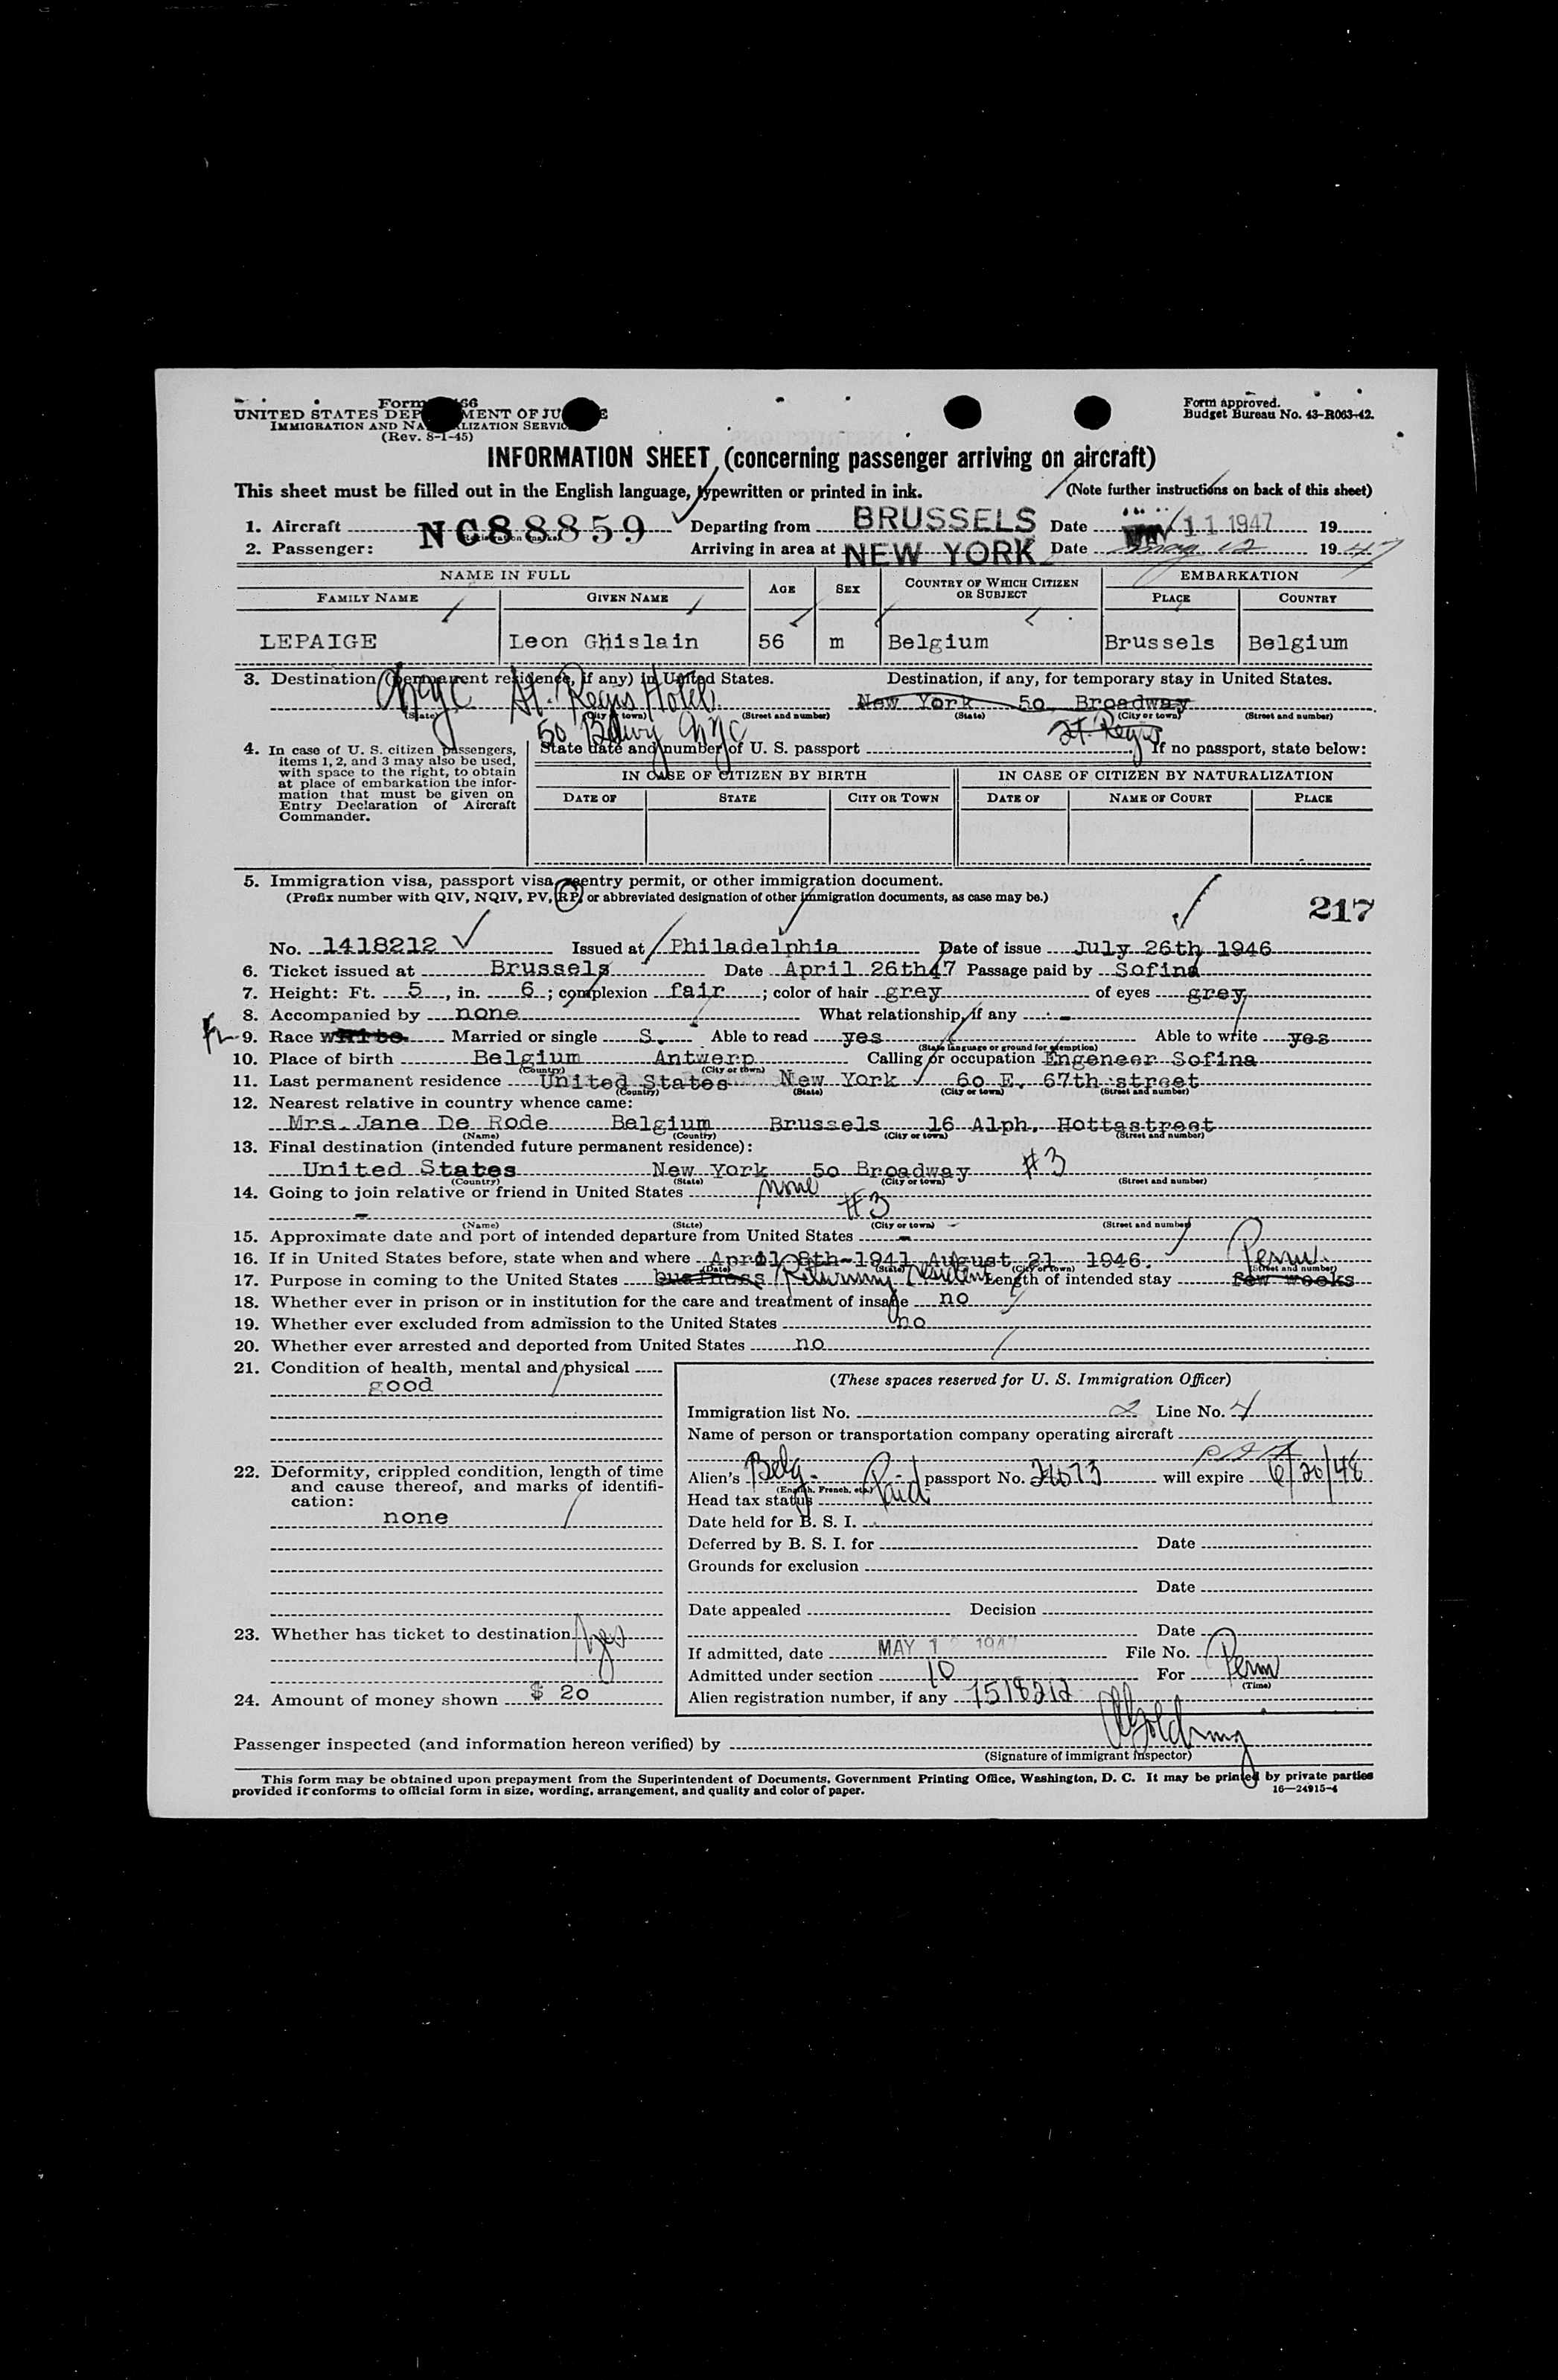 Form 66
UNITED STATES DEP MENT OF JU E
IMMIGRATION AND NA LIZATION SERVIC
(Rev. 8-1-45)
Form approved.
Budget Bureau No. 43-R063-42.
INFORMATION SHEET (concerning passenger arriving on aircraft)
This sheet must be filled out in the English language, typewritten or printed in ink. (Note further instructions on back of this sheet)
1. Aircraft NC88859 Departing from BRUSSELS Date 11 1947 19
(Registration marks)
2. Passenger: Arriving in area at NEW YORK Date May 12 1947
NAME IN FULL AGE SEX COUNTRY OF WHICH CITIZEN OR SUBJECT EMBARKATION
FAMILY NAME GIVEN NAME PLACE COUNTRY
LEPAIGE Leon Ghislain 56 m Belgium Brussels Belgium
3. Destination (permanent residence, if any) in United States. Destination, if any, for temporary stay in United States.
NYC St. Regis Hotel New York 50 Broadway
(State) (City or town) (Street and number) (State) (City or town) (Street and number)
50 Bdwy NYC St Regis
4. In case of U. S. citizen passengers, items 1, 2, and 3 may also be used, with space to the right, to obtain at place of embarkation the information that must be given on Entry Declaration of Aircraft Commander.
State date and number of U. S. passport If no passport, state below:
IN CASE OF CITIZEN BY BIRTH IN CASE OF CITIZEN BY NATURALIZATION
DATE OF STATE CITY OR TOWN DATE OF NAME OF COURT PLACE
5. Immigration visa, passport visa, reentry permit, or other immigration document.
(Prefix number with QIV, NQIV, PV, RP, or abbreviated designation of other immigration documents, as case may be.)
217
No. 1418212 Issued at Philadelphia Date of issue July 26th 1946
6. Ticket issued at Brussels Date April 26th47 Passage paid by Sofina
7. Height: Ft. 5, in. 6; complexion fair; color of hair grey of eyes grey
8. Accompanied by none What relationship, if any -
9. Race white Married or single S. Able to read yes Able to write yes
(State language or ground for exemption)
10. Place of birth Belgium Antwerp Calling or occupation Engeneer Sofina
(Country) (City or town)
11. Last permanent residence United States New York 60 E. 67th street
(Country) (State) (City or town) (Street and number)
12. Nearest relative in country whence came:
Mrs. Jane De Rode Belgium Brussels 16 Alph. Hottastreet
(Name) (Country) (City or town) (Street and number)
13. Final destination (intended future permanent residence):
United States New York 50 Broadway #3
(Country) (State) (City or town) (Street and number)
14. Going to join relative or friend in United States none
- #3
(Name) (State) (City or town) (Street and number)
15. Approximate date and port of intended departure from United States -
16. If in United States before, state when and where April 8th-1941 August 21 1946. Perm.
(Date) (State) (City or town) (Street and number)
17. Purpose in coming to the United States business Returning Resident Length of intended stay few weeks
18. Whether ever in prison or in institution for the care and treatment of insane no
19. Whether ever excluded from admission to the United States no
20. Whether ever arrested and deported from United States no
21. Condition of health, mental and physical
good
22. Deformity, crippled condition, length of time and cause thereof, and marks of identification:
none
23. Whether has ticket to destination yes
24. Amount of money shown $ 20
(These spaces reserved for U. S. Immigration Officer)
Immigration list No. 2 Line No. 4
Name of person or transportation company operating aircraft
Alien's Belg. passport No. will expire 6/20/48
(English, French, etc.)
Head tax status Paid
Date held for B. S. I.
Deferred by B. S. I. for Date
Grounds for exclusion
Date
Date appealed Decision
Date
If admitted, date MAY 12 1947 File No.
Admitted under section 10 For Perm
(Time)
Alien registration number, if any
Passenger inspected (and information hereon verified) by
(Signature of immigrant inspector)
This form may be obtained upon prepayment from the Superintendent of Documents, Government Printing Office, Washington, D. C. It may be printed by private parties
provided it conforms to official form in size, wording, arrangement, and quality and color of paper. 16—24915-4